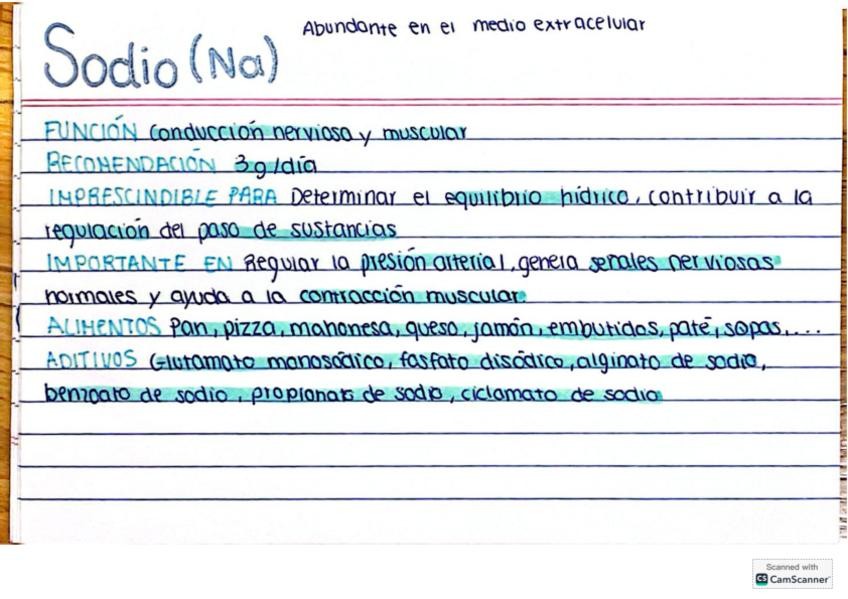 Sodio (Na)
Abundante en el medio extracelular
FUNCIÓN Conducción nerviosa y muscular
RECOMENDACIÓN 3 g/día
IMPRESCINDIBLE PARA Determinar el equilibrio hídrico, contribuir a la
regulación del paso de sustancias
IMPORTANTE EN Regular la presión arterial, genera señales nerviosas
normales y ayuda a la contracción muscular.
ALIMENTOS Pan, pizza, mahonesa, queso, jamón, embutidos, paté, sopas,...
ADITIVOS Glutamato monosódico, fosfato disódico, alginato de sodio,
benzoato de sodio, propionato de sodio, ciclamato de sodio
Scanned with
CS CamScanner